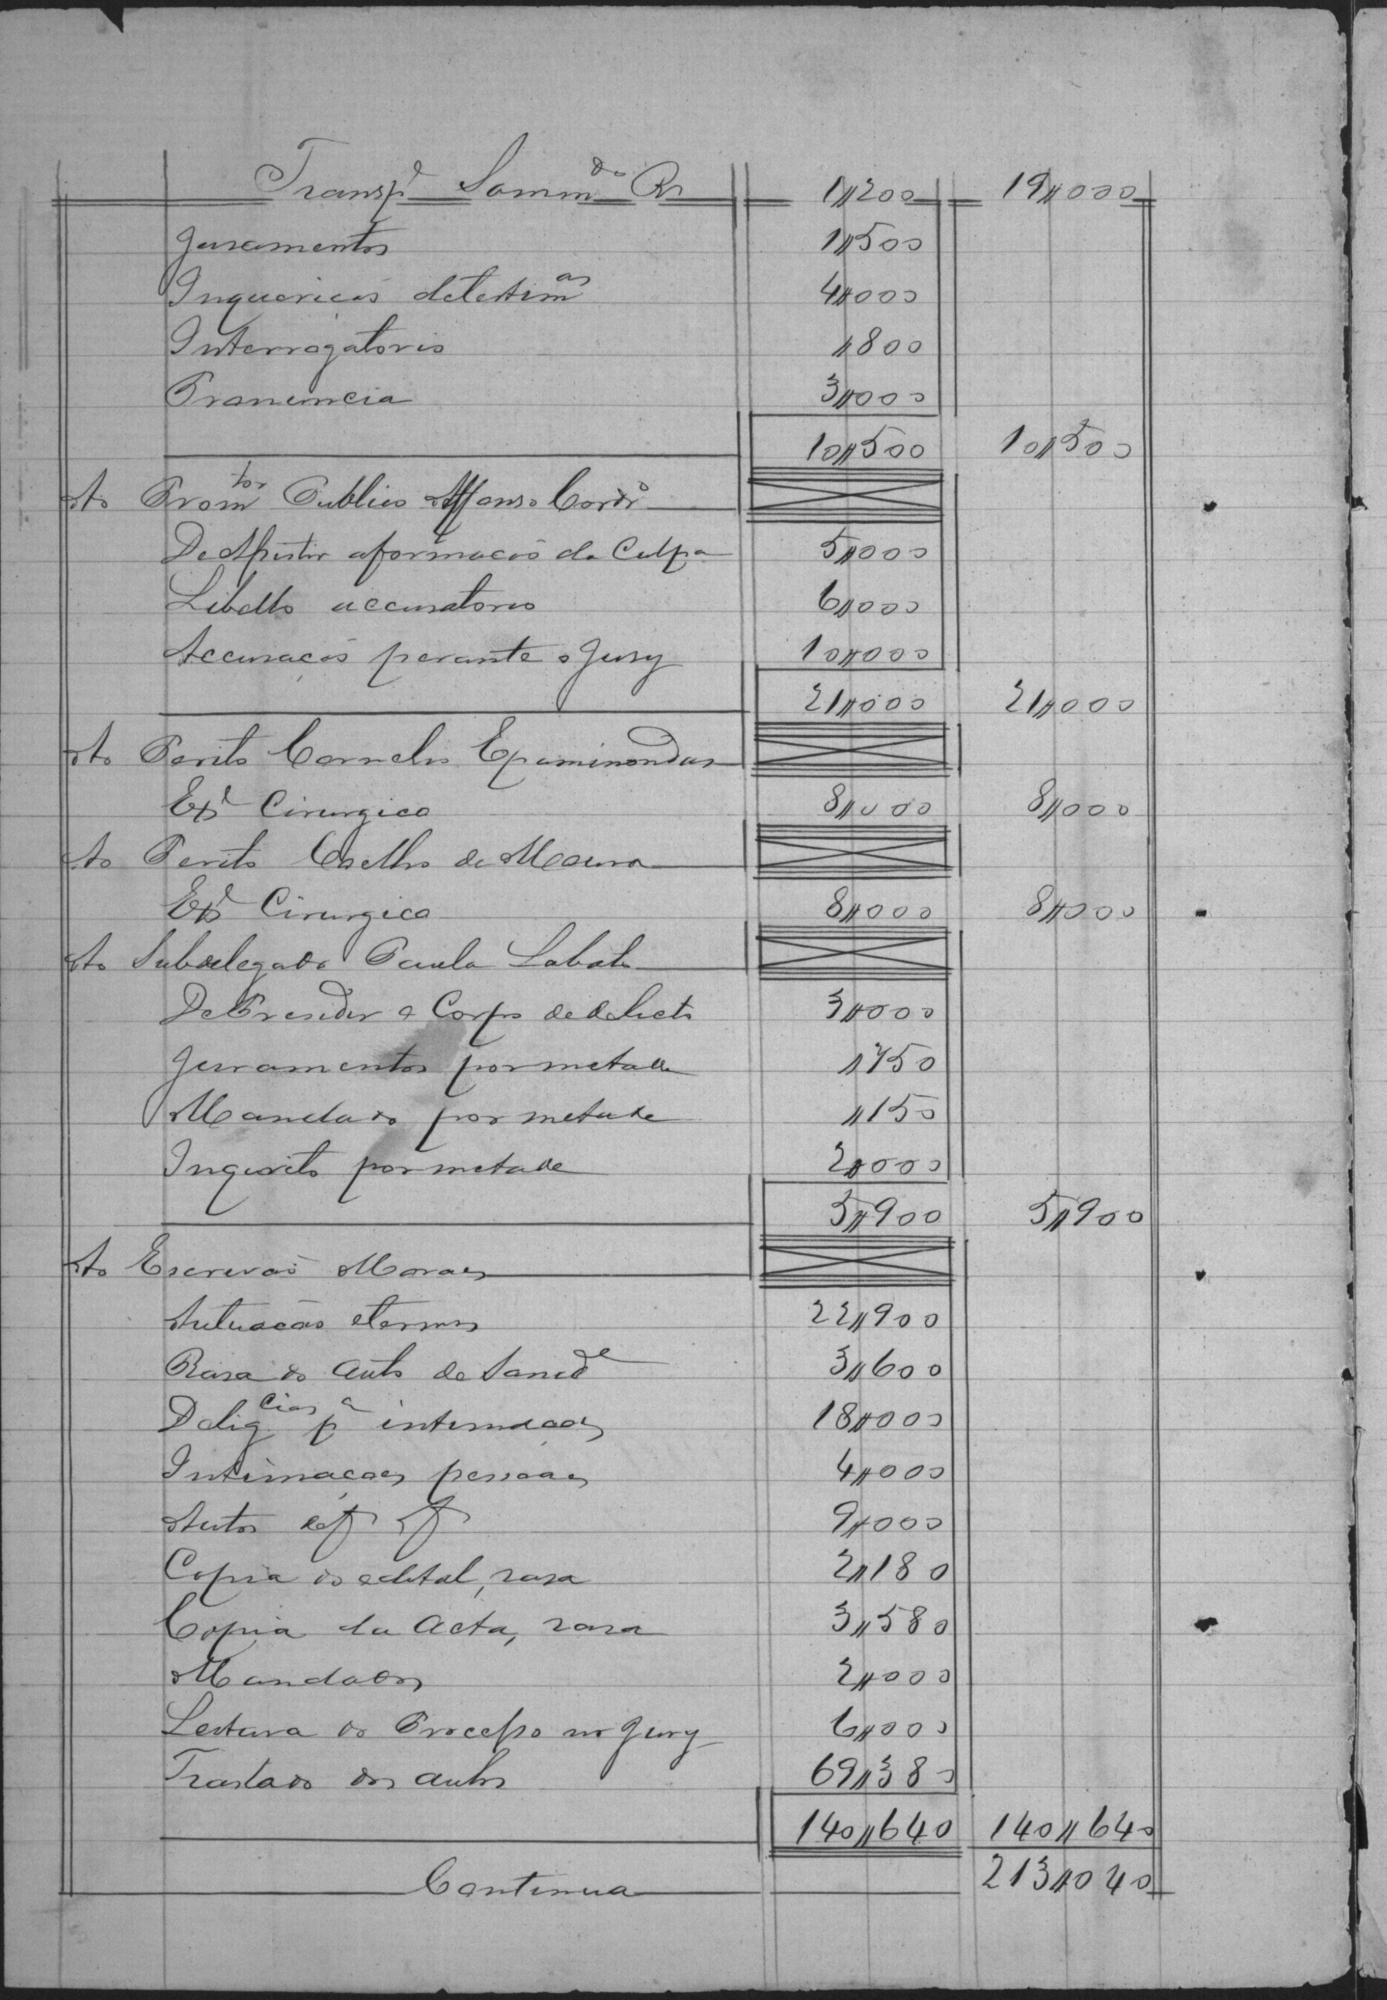 Transp.e Somm.do Rs 1,,200 19,,000
Juramentos 1,,500
Inquericōs de testim.as 4,,000
Interrogatorio ,,800
Pronuncia 3,,000
10,,500 10,,500
Ao Prom.tor Publico Affonso Cordr.o
De Assistir a formacaō da Culpa 5,,000
Libello accusatorio 6,,000
Accusacaō perante o Jury 10,,000
21,,000 21,,000
Ao Perito Cornelio Epaminondas
Ex.e Cirurgico 8,,000 8,,000
Ao Perito Coelho de Moura
Ex.e Cirurgico 8,,000 8,,000
Ao Subdelegado Paula
De Presedir o Corpo de delicto 3,,000
Juramentos por metade ,,750
Mandado por metade ,,150
Inqueritо por metade 2,,000
5,,900 5,,900
Ao Escrivaō Moraes
Autuacaō e termos 22,,900
Rasa do auto de Sanid.e 3,,600
Delig.cias p.a intimações 18,,000
Intimaçoes pessoaes 4,,000
Autos 9,,000
Copia do edital, rasa 2,,180
Copia da Acta, rasa 3,,580
Mandados 2,,000
Leitura do Processo no Jury 6,,000
Traslado dos autos 69,,380
140,,640 140,,640
Continua 213,,040